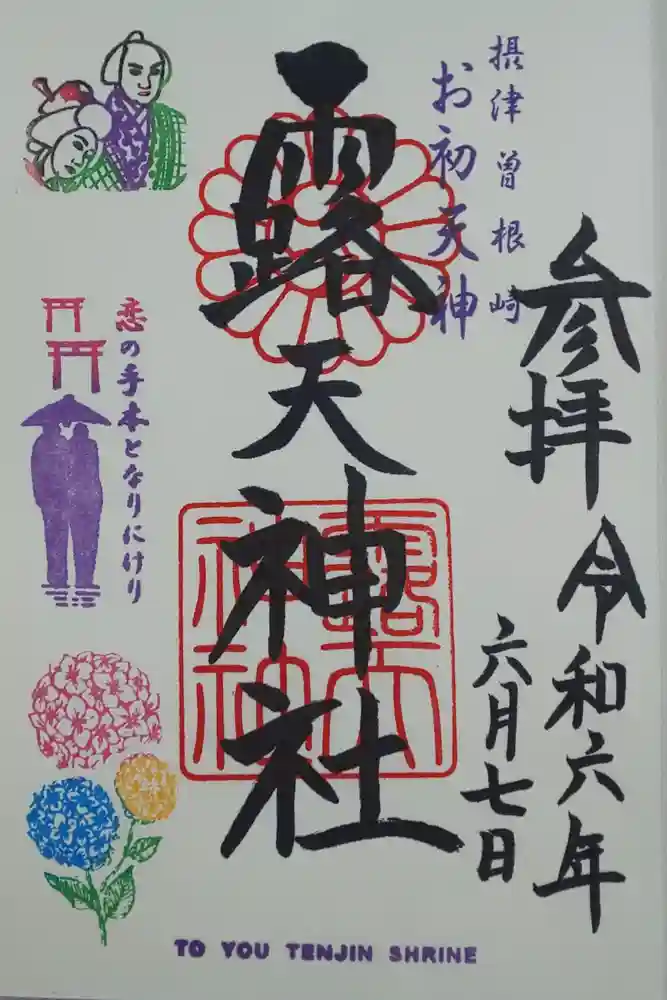 参拝 令和六年
六月七日
摂津 曽根崎
お初天神
露天神社
露天
神社
恋の手本となりにけり
TO YOU TENJIN SHRINE